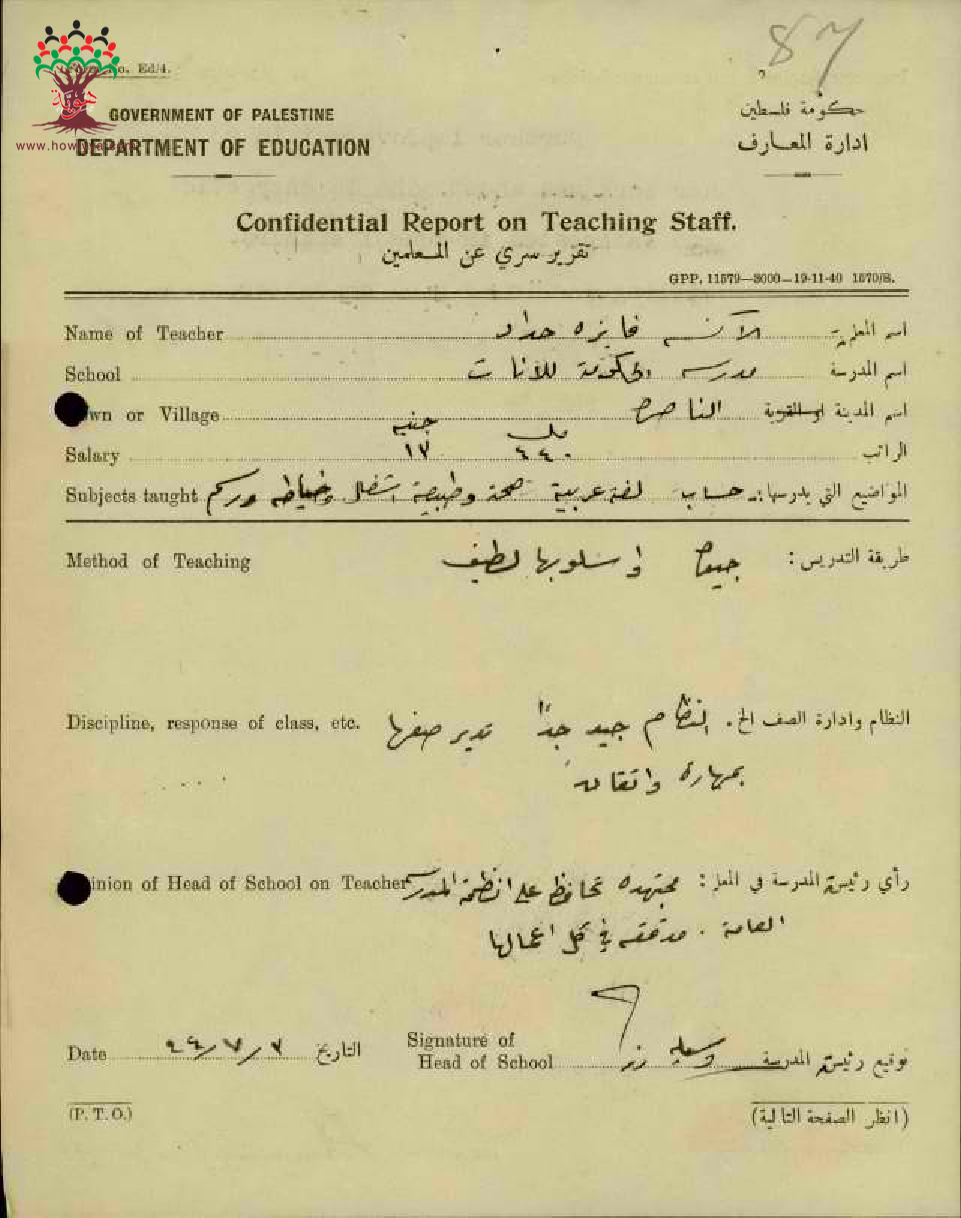 87
Form No. Ed/4.
هوية
www.howiyya.com
GOVERNMENT OF PALESTINE
حكومة فلسطين
DEPARTMENT OF EDUCATION
ادارة المعارف
Confidential Report on Teaching Staff.
تقرير سري عن المعلمين
GPP. 11579—3000—19-11-40 1570/S.
Name of Teacher الآنسه فايزه حداد اسم المعلمة
School مدرسه الحكومة للاناث اسم المدرسة
Town or Village الناصره اسم المدينة او القرية
جنيه مل
Salary ١٧ ٤٤٠ الراتب
Subjects taught حساب لغة عربية صحة وطبيعة اشغال وخياطه ورسم المواضيع التي يدرسها:
Method of Teaching جيدة واسلوبها لطيف طريقة التدريس:
Discipline, response of class, etc. النظام جيد جدًا تدير صفها النظام وادارة الصف الخ.
بمهارة واتقان
Opinion of Head of School on Teacher مجتهده تحافظ على انظمة المدرسه رأي رئيسة المدرسة في المعلم:
العامة. مدققه في كل اعمالها
Signature of
Date ٢/٧/٤٤ التاريخ
Head of School توقيع رئيسة المدرسة
(P. T. O.) (انظر الصفحة التالية)